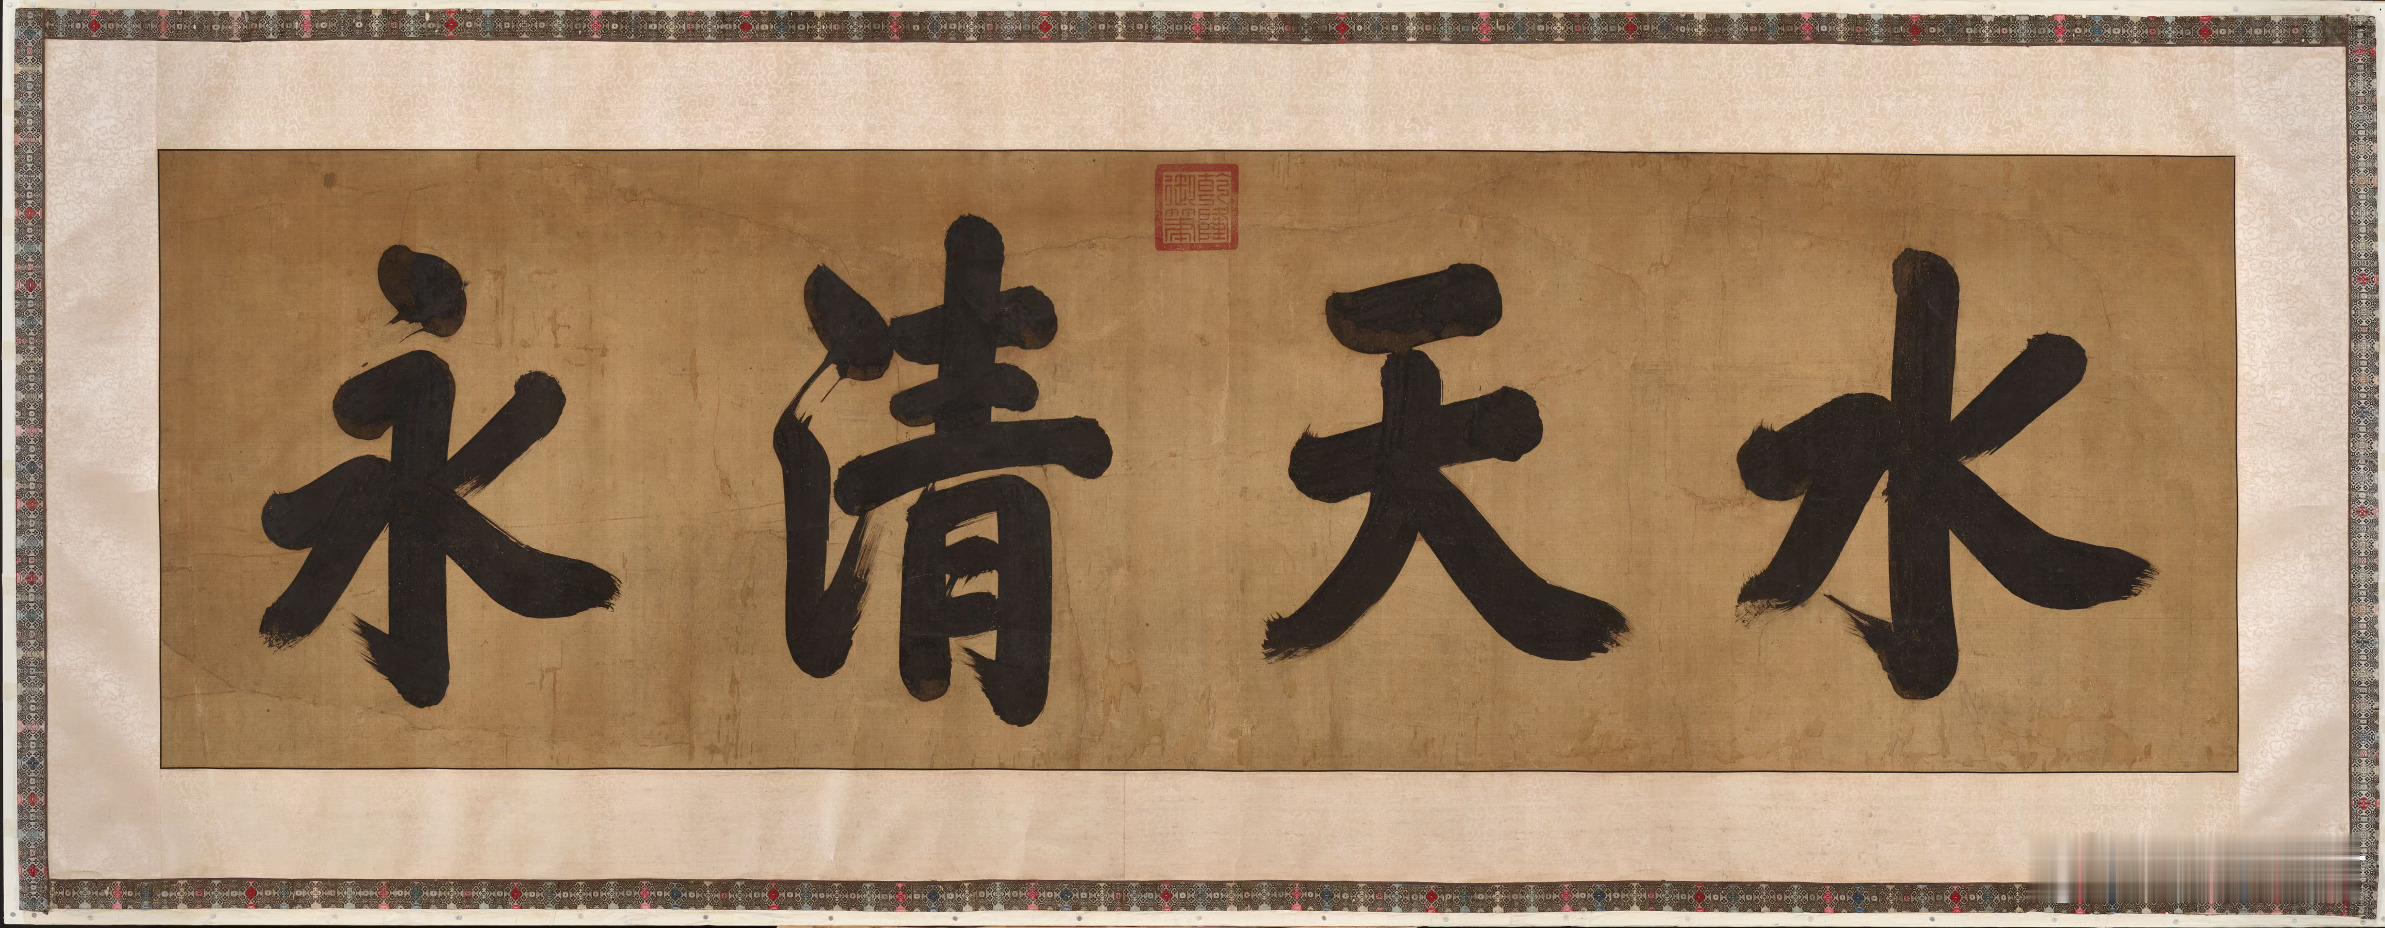 水天清永
乾隆
御筆